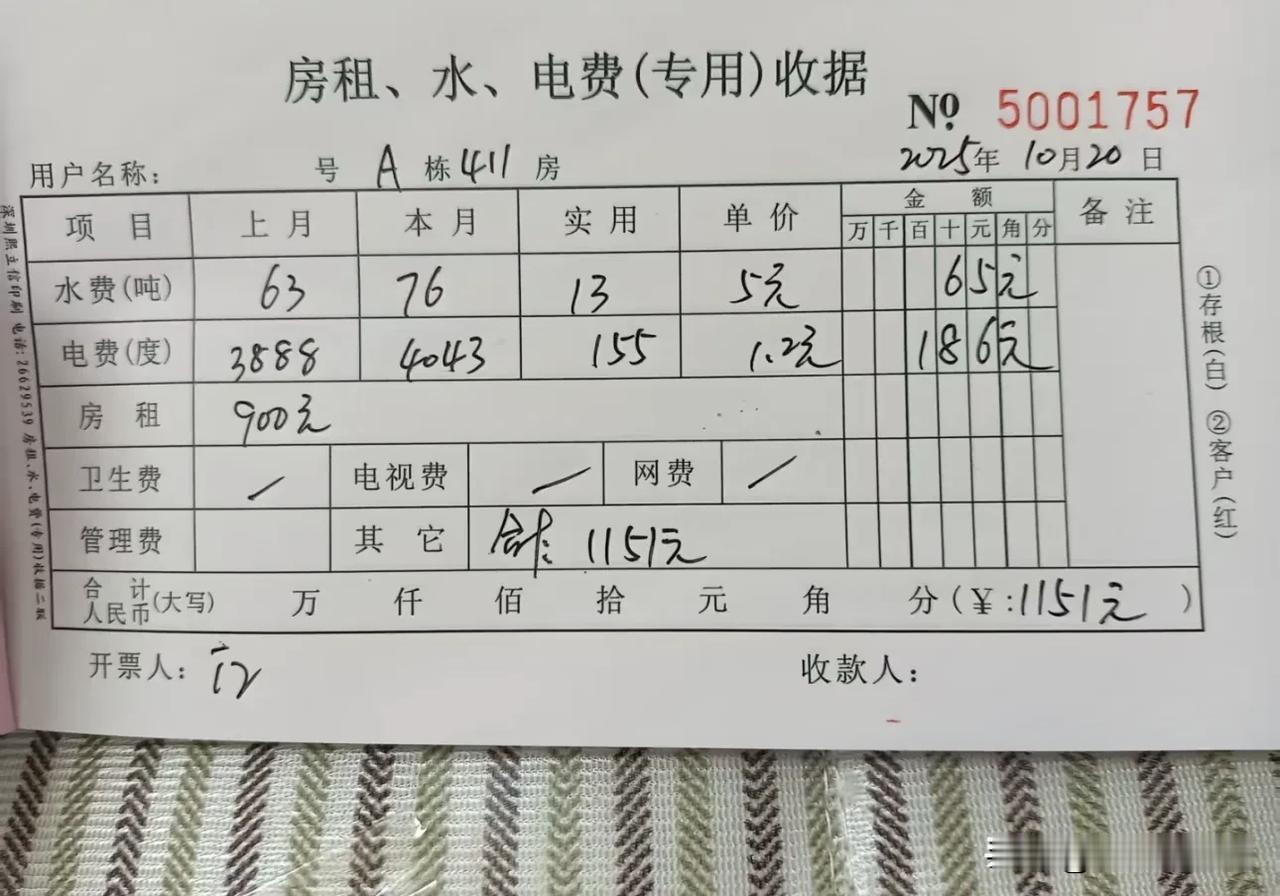 房租、水、电费(专用)收据
№ 5001757
用户名称： 号 A 栋 411 房 2025年 10月20日
项目 上月 本月 实用 单价 金额 备注
万 千 百 十 元 角 分
水费(吨) 63 76 13 5元 65元
电费(度) 3888 4043 155 1.2元 186元
房租 900元
卫生费 / 电视费 / 网费 /
管理费 其它 合计: 1151元
合计人民币(大写) 万 仟 佰 拾 元 角 分(¥:1151元)
开票人： 收款人：
①存根(白) ②客户(红)
深圳熙立信印刷 电话:26629539 房租、水、电费(专用)收据二联